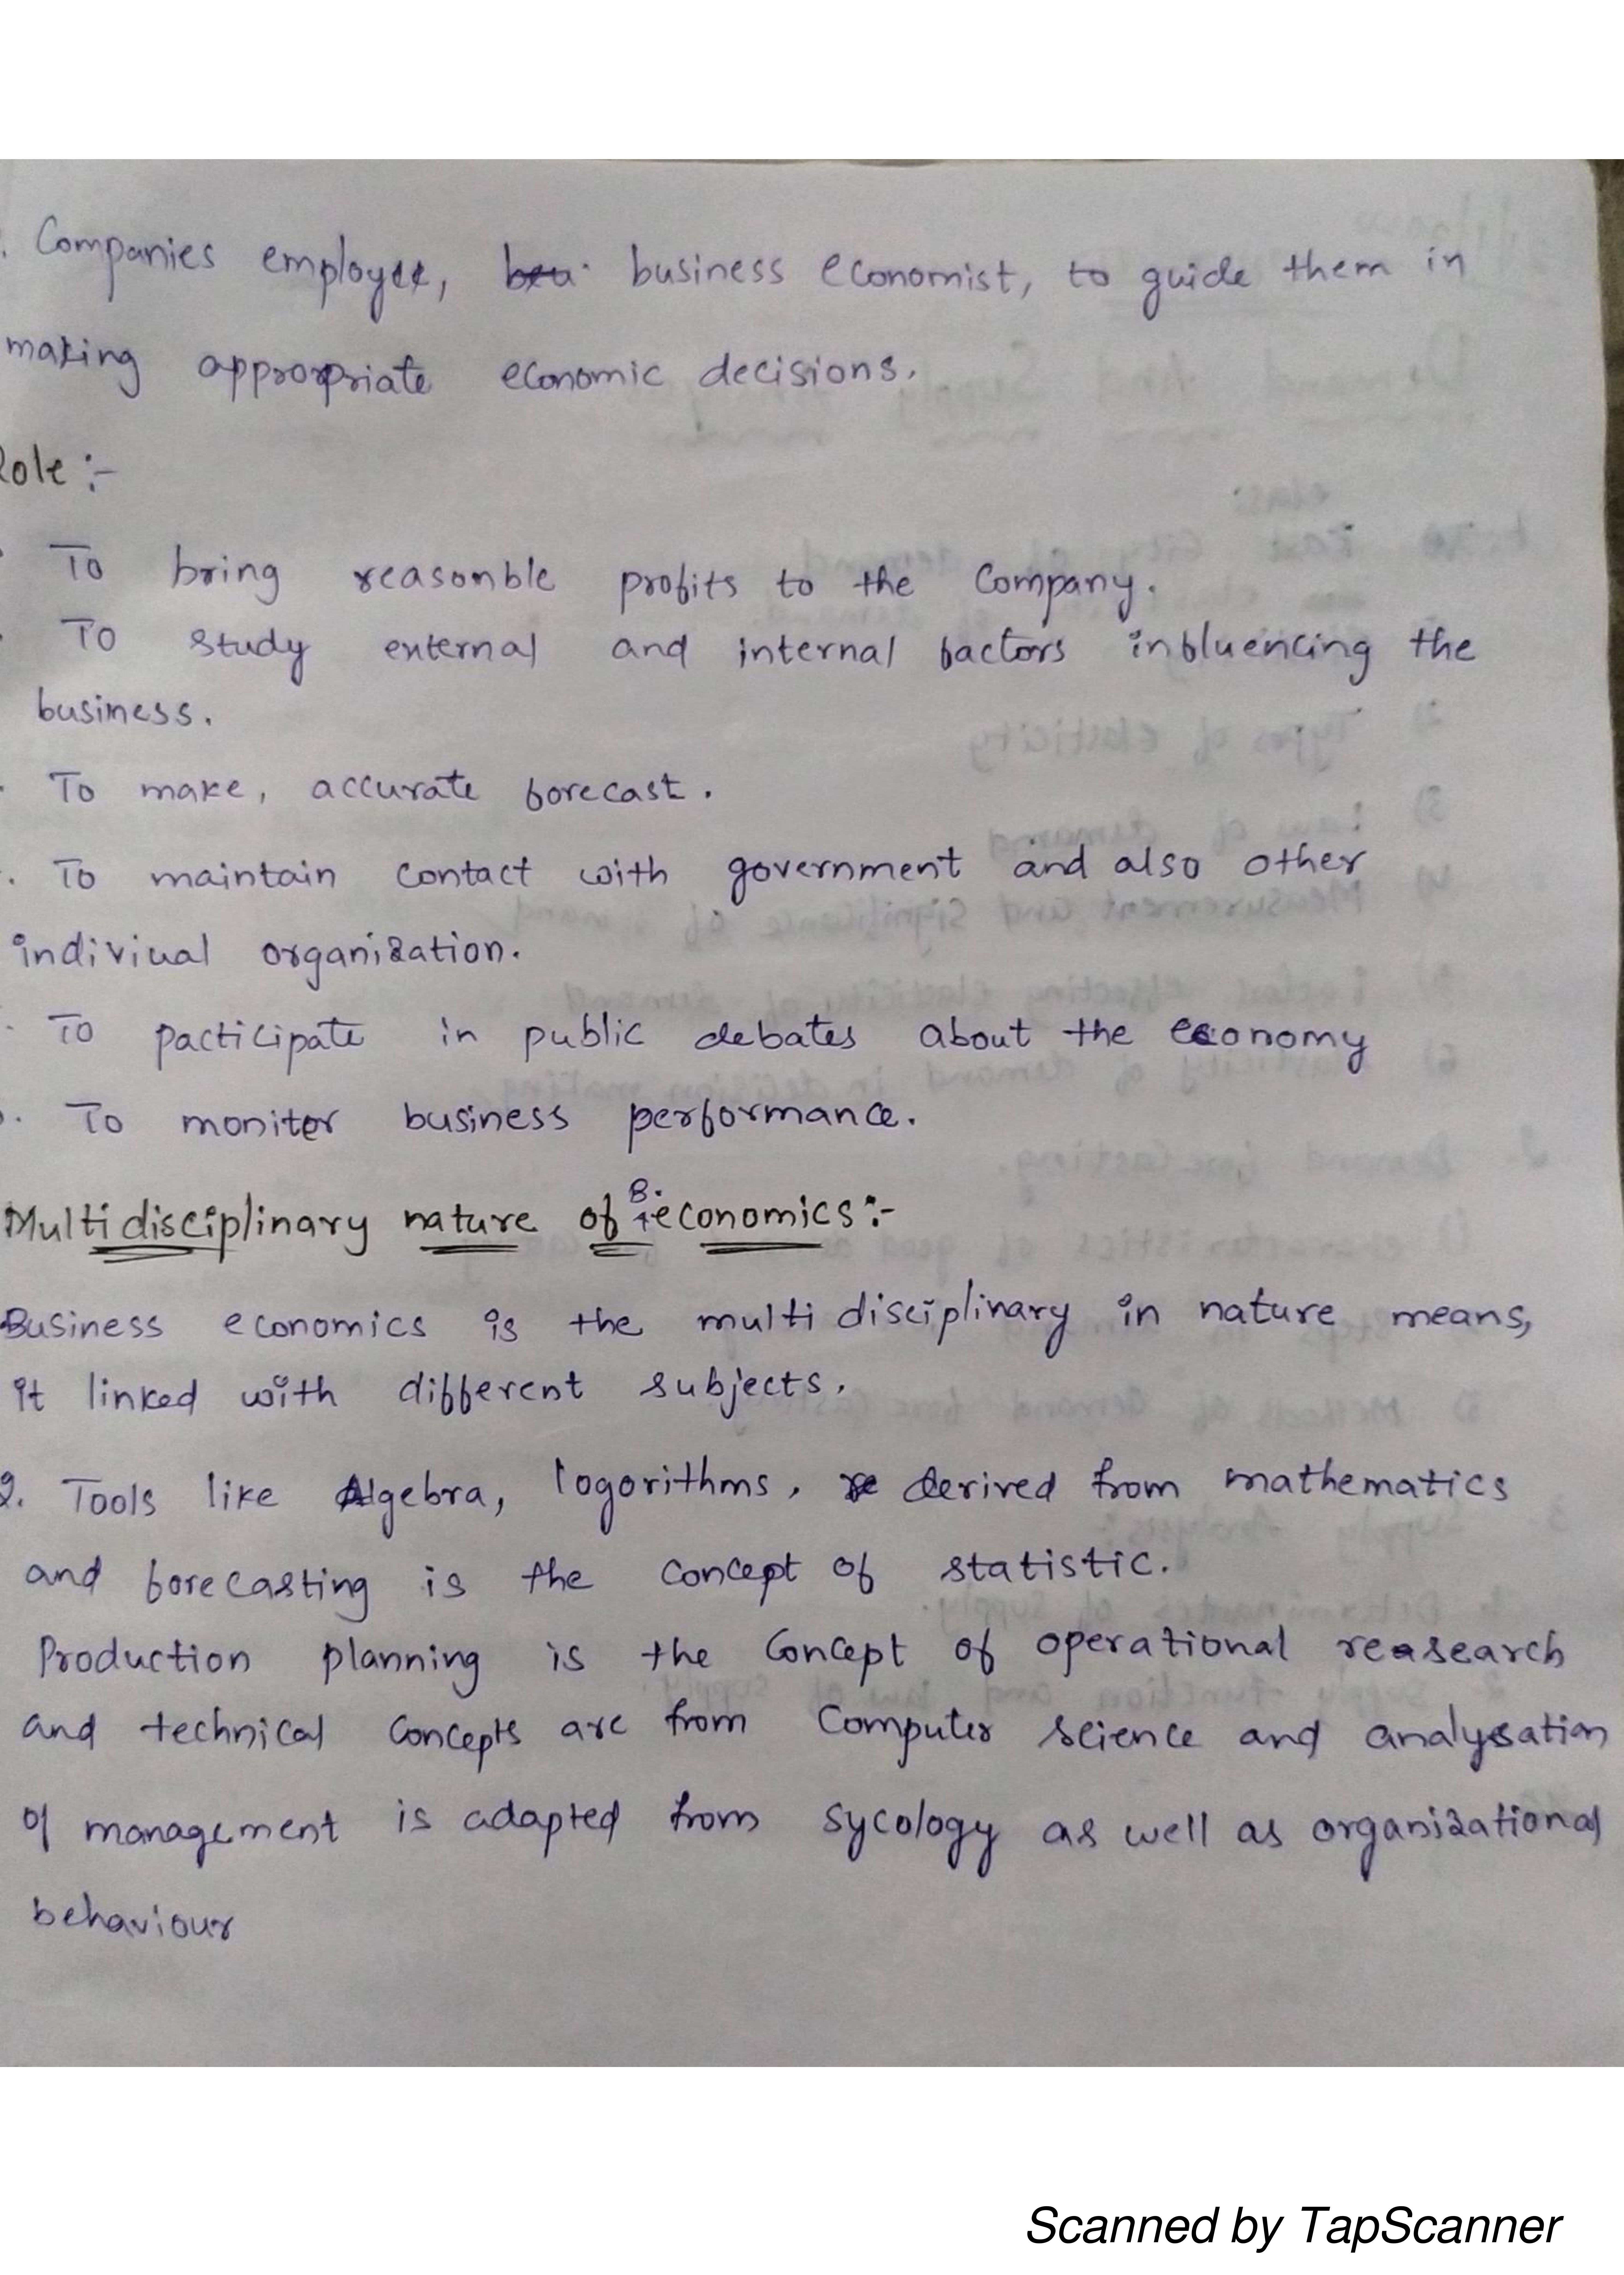 . Companies employee, business economist, to guide them in
making appropriate economic decisions.
Role :-
To bring reasonble profits to the Company.
To study external and internal factors influencing the
business.
To make, accurate forecast.
. To maintain contact with government and also other
indiviual organization.
To pacticipate in public debates about the economy
. To monitor business performance.
Multidisciplinary nature of B. economics :-
Business economics is the multi disciplinary in nature means,
it linked with different subjects.
2. Tools like Algebra, logorithms, derived from mathematics
and forecasting is the concept of statistic.
Production planning is the Concept of operational reasearch
and technical Concepts are from Computer science and analysation
of management is adapted from sycology as well as organizational
behaviour
Scanned by TapScanner